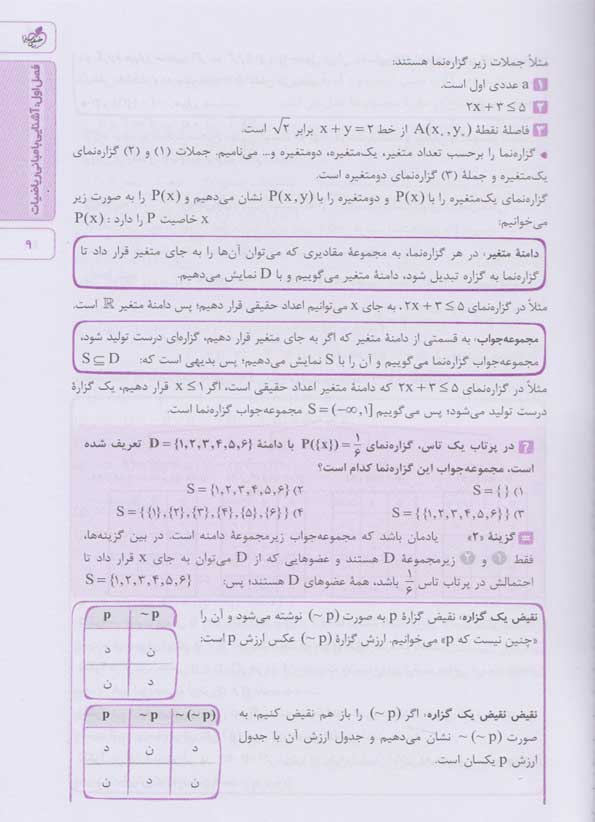 مثلاً جملات زیر گزاره‌نما هستند:
۱ a عددی اول است.
۲ ۲x + ۳ ≤ ۵
۳ فاصلهٔ نقطهٔ A(x۰, y۰) از خط x + y = ۲ برابر √۲ است.
گزاره‌نما را برحسب تعداد متغیر، یک‌متغیره، دومتغیره و... می‌نامیم. جملات (۱) و (۲) گزاره‌نمای
یک‌متغیره و جملهٔ (۳) گزاره‌نمای دومتغیره است.
گزاره‌نمای یک‌متغیره را با P(x) و دومتغیره را با P(x, y) نشان می‌دهیم و P(x) را به صورت زیر
می‌خوانیم: x خاصیت P را دارد : P(x)
دامنهٔ متغیر: در هر گزاره‌نما، به مجموعهٔ مقادیری که می‌توان آن‌ها را به جای متغیر قرار داد تا
گزاره‌نما به گزاره تبدیل شود، دامنهٔ متغیر می‌گوییم و با D نمایش می‌دهیم.
مثلاً در گزاره‌نمای ۲x + ۳ ≤ ۵، به جای x می‌توانیم اعداد حقیقی قرار دهیم؛ پس دامنهٔ متغیر ℝ است.
مجموعه‌جواب: به قسمتی از دامنهٔ متغیر که اگر به جای متغیر قرار دهیم، گزاره‌ای درست تولید شود،
مجموعه‌جواب گزاره‌نما می‌گوییم و آن را با S نمایش می‌دهیم؛ پس بدیهی است که: S ⊆ D
مثلاً در گزاره‌نمای ۲x + ۳ ≤ ۵ که دامنهٔ متغیر اعداد حقیقی است، اگر x ≤ ۱ قرار دهیم، یک گزارهٔ
درست تولید می‌شود؛ پس می‌گوییم S = (−∞, ۱] مجموعه‌جواب گزاره‌نما است.
؟ در پرتاب یک تاس، گزاره‌نمای P({x}) = ۱/۶ با دامنهٔ D = {۱,۲,۳,۴,۵,۶} تعریف شده
است، مجموعه‌جواب این گزاره‌نما کدام است؟
۱) S = { } ۲) S = {۱,۲,۳,۴,۵,۶}
۳) S = { {۱,۲,۳,۴,۵,۶} } ۴) S = { {۱},{۲},{۳},{۴},{۵},{۶} }
گزینهٔ «۲» یادمان باشد که مجموعه‌جواب زیرمجموعهٔ دامنه است. در بین گزینه‌ها،
فقط ۱ و ۲ زیرمجموعهٔ D هستند و عضوهایی که از D می‌توان به جای x قرار داد تا
احتمالش در پرتاب تاس ۱/۶ باشد، همهٔ عضوهای D هستند؛ پس: S = {۱,۲,۳,۴,۵,۶}
نقیض یک گزاره: نقیض گزارهٔ p به صورت (~p) نوشته می‌شود و آن را
«چنین نیست که p» می‌خوانیم. ارزش گزارهٔ (~p) عکس ارزش p است:
p ~p
د ن
ن د
نقیض نقیض یک گزاره: اگر (~p) را باز هم نقیض کنیم، به
صورت ~(~p) نشان می‌دهیم و جدول ارزش آن با جدول
ارزش p یکسان است.
p ~p ~(~p)
د ن د
ن د ن
فصل اول: آشنایی با مبانی ریاضیات
۹